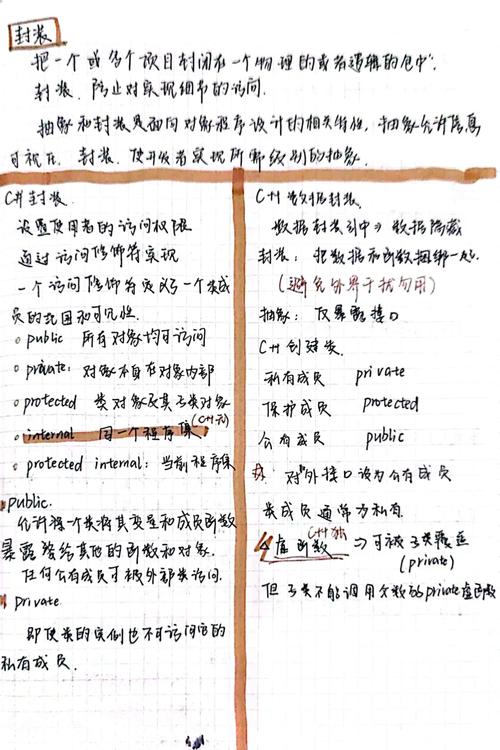 封装
把一个或多个项目封闭在一个物理的或者逻辑的包中".
封装.防止对实现细节的访问.
抽象和封装是面向对象程序设计的相关特性,抽象允许信息
可视化.封装.使开发者实现所需级别的抽象.
C#封装.
设置使用者的访问权限
通过访问修饰符实现
一个访问修饰符定义了一个类成
员的范围和可见性.
public 所有对象均可访问
private: 对象本身在对象内部
protected 类对象及其子类对象
(C++无)
internal 同一个程序集
protected internal: 当前程序集
public.
允许将一个类将其变量和成员函数
暴露给其他的函数和对象.
任何公有成员可被外部类访问.
private
即使类的实例也不可访问它的
私有成员.
C++数据封装.
数据封装引申⇒数据隐藏
封装: 把数据和函数捆绑一起.
(避免外界干扰勿用)
抽象: 仅暴露接口
C++创建类.
私有成员 private
保护成员 protected
公有成员 public
对外接口设为公有成员
类成员通常为私有.
C++独
虚函数 ⇒可被子类覆盖
(private)
但子类不能调用父类的private虚函数